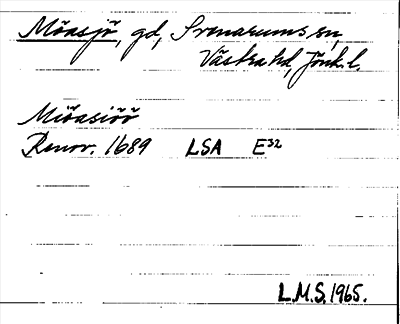 Möasjö, gd, Svenarums sn,
Västra hd, Jönk. l.
Miöasiöö
Renov. 1689 LSA E³²
L.M.S. 1965.